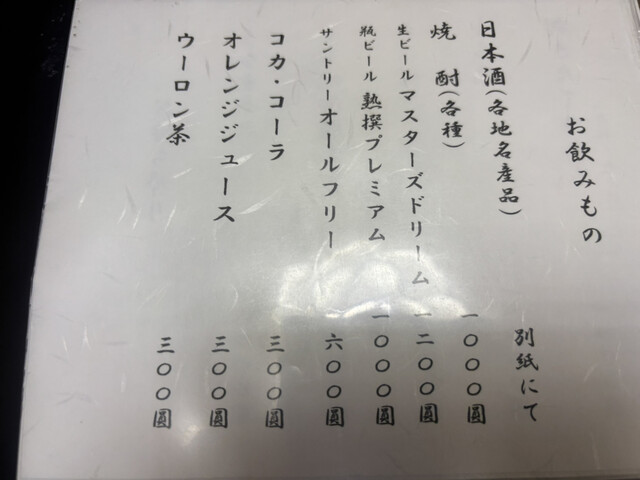 お飲みもの
日本酒(各地名産品) 別紙にて
焼酎(各種) 一〇〇〇圓
生ビール マスターズドリーム 一二〇〇圓
瓶ビール 熟撰プレミアム 一〇〇〇圓
サントリーオールフリー 六〇〇圓
コカ・コーラ 三〇〇圓
オレンジジュース 三〇〇圓
ウーロン茶 三〇〇圓